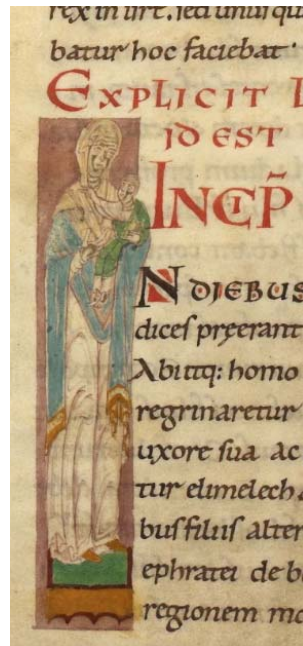 rex in isrł. sed unusqu
batur hoc faciebat·
EXPLICIT
ID EST
INCIP̄
N DIEBUS
dices preerant
Abiitq: homo
regrinaretur
uxore sua ac
tur elimelech
bus filiis alter
ephratei de b
regionem mo